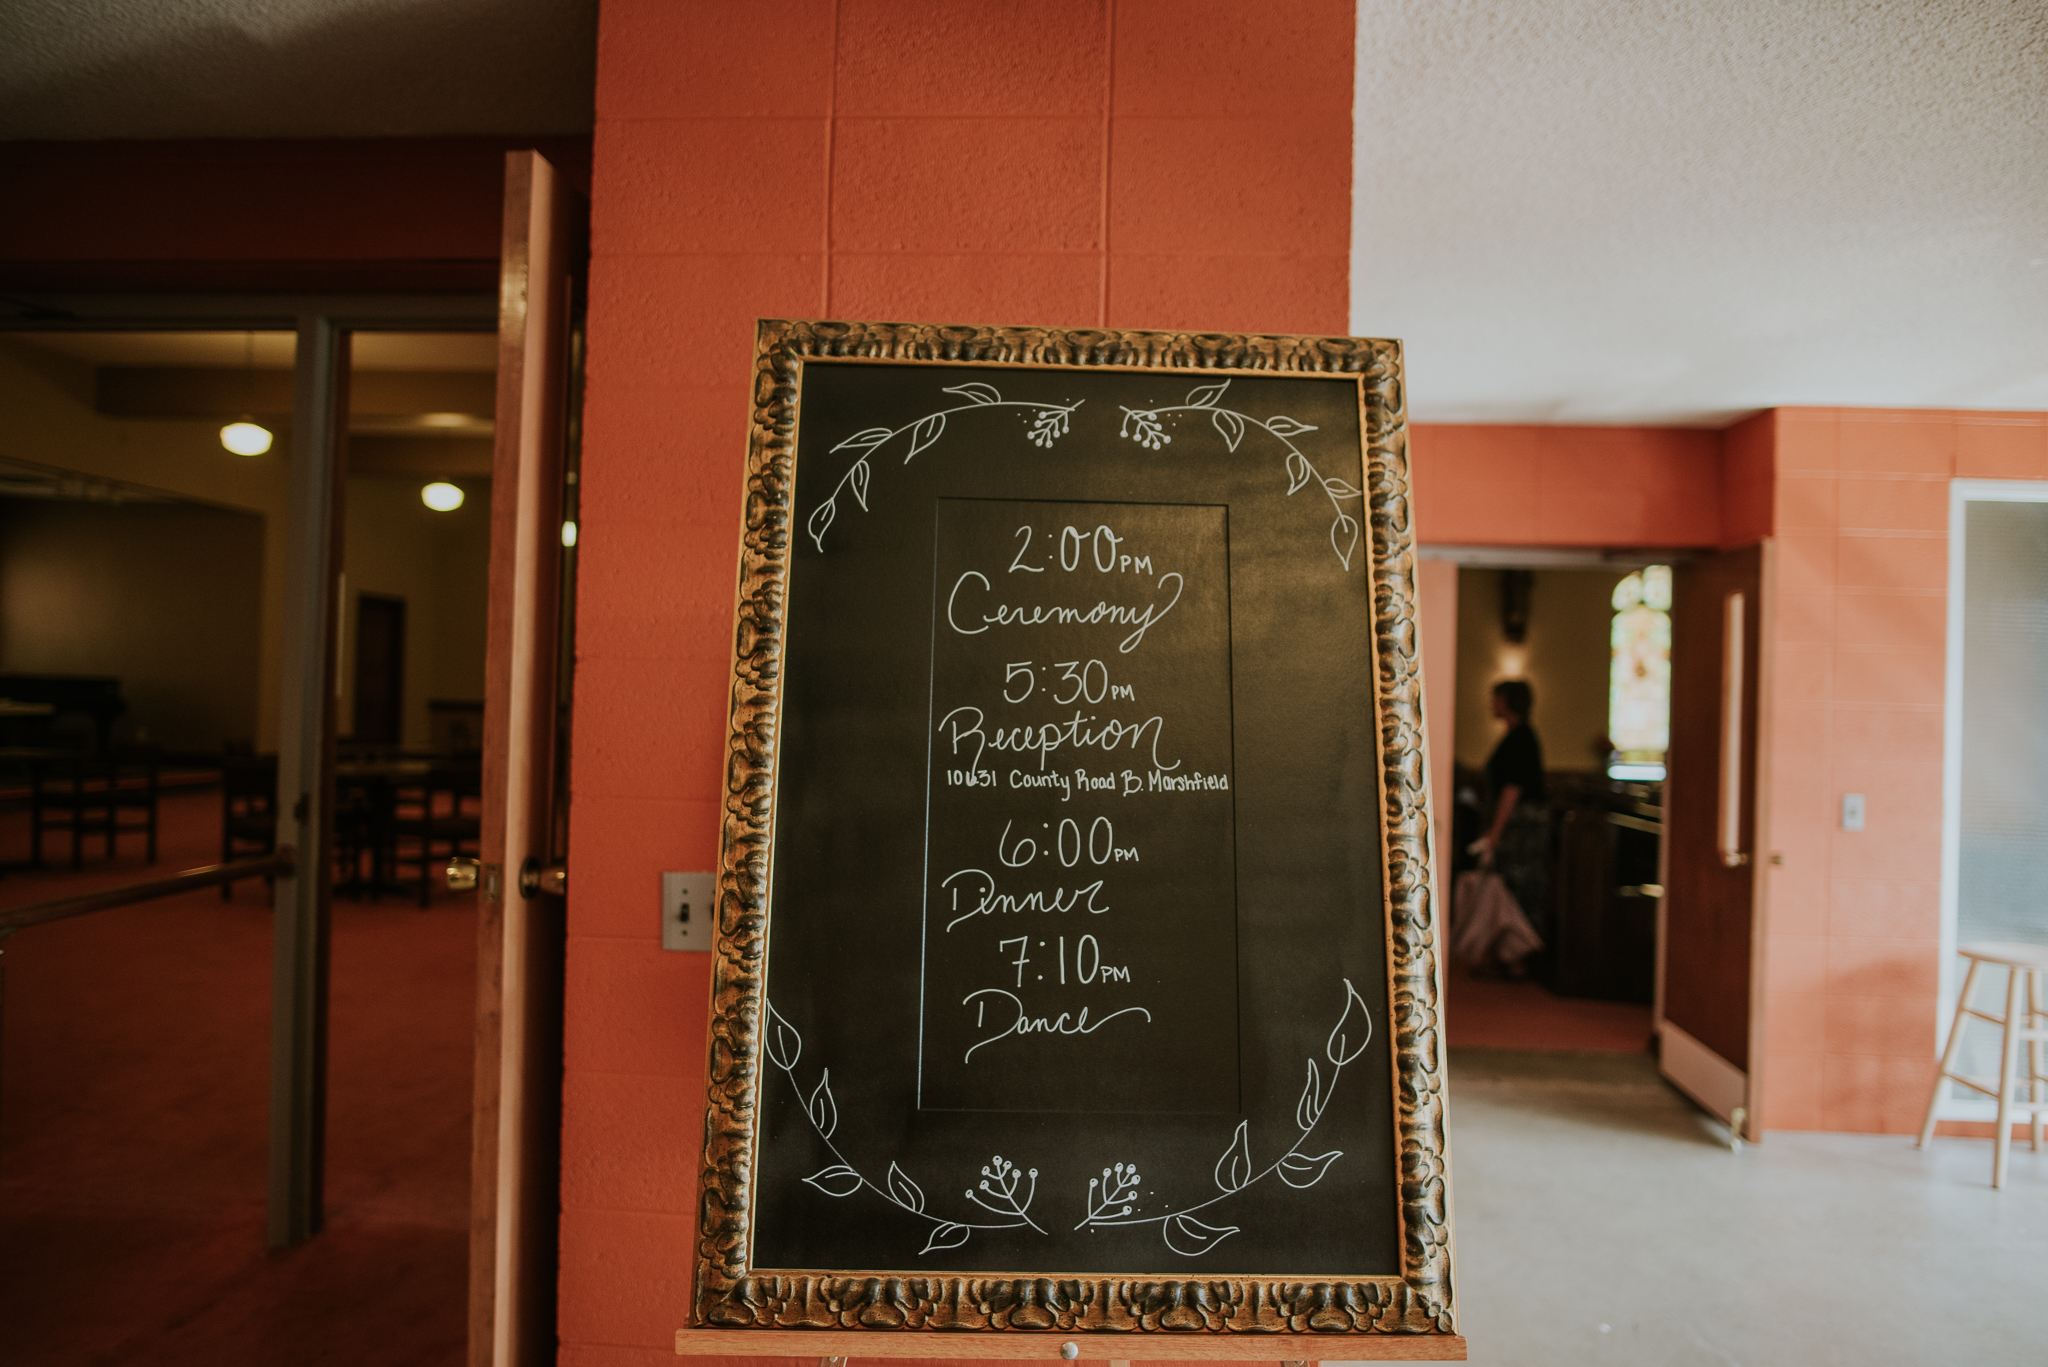 2:00PM
Ceremony
5:30PM
Reception
10631 County Road B. Marshfield
6:00PM
Dinner
7:10PM
Dance